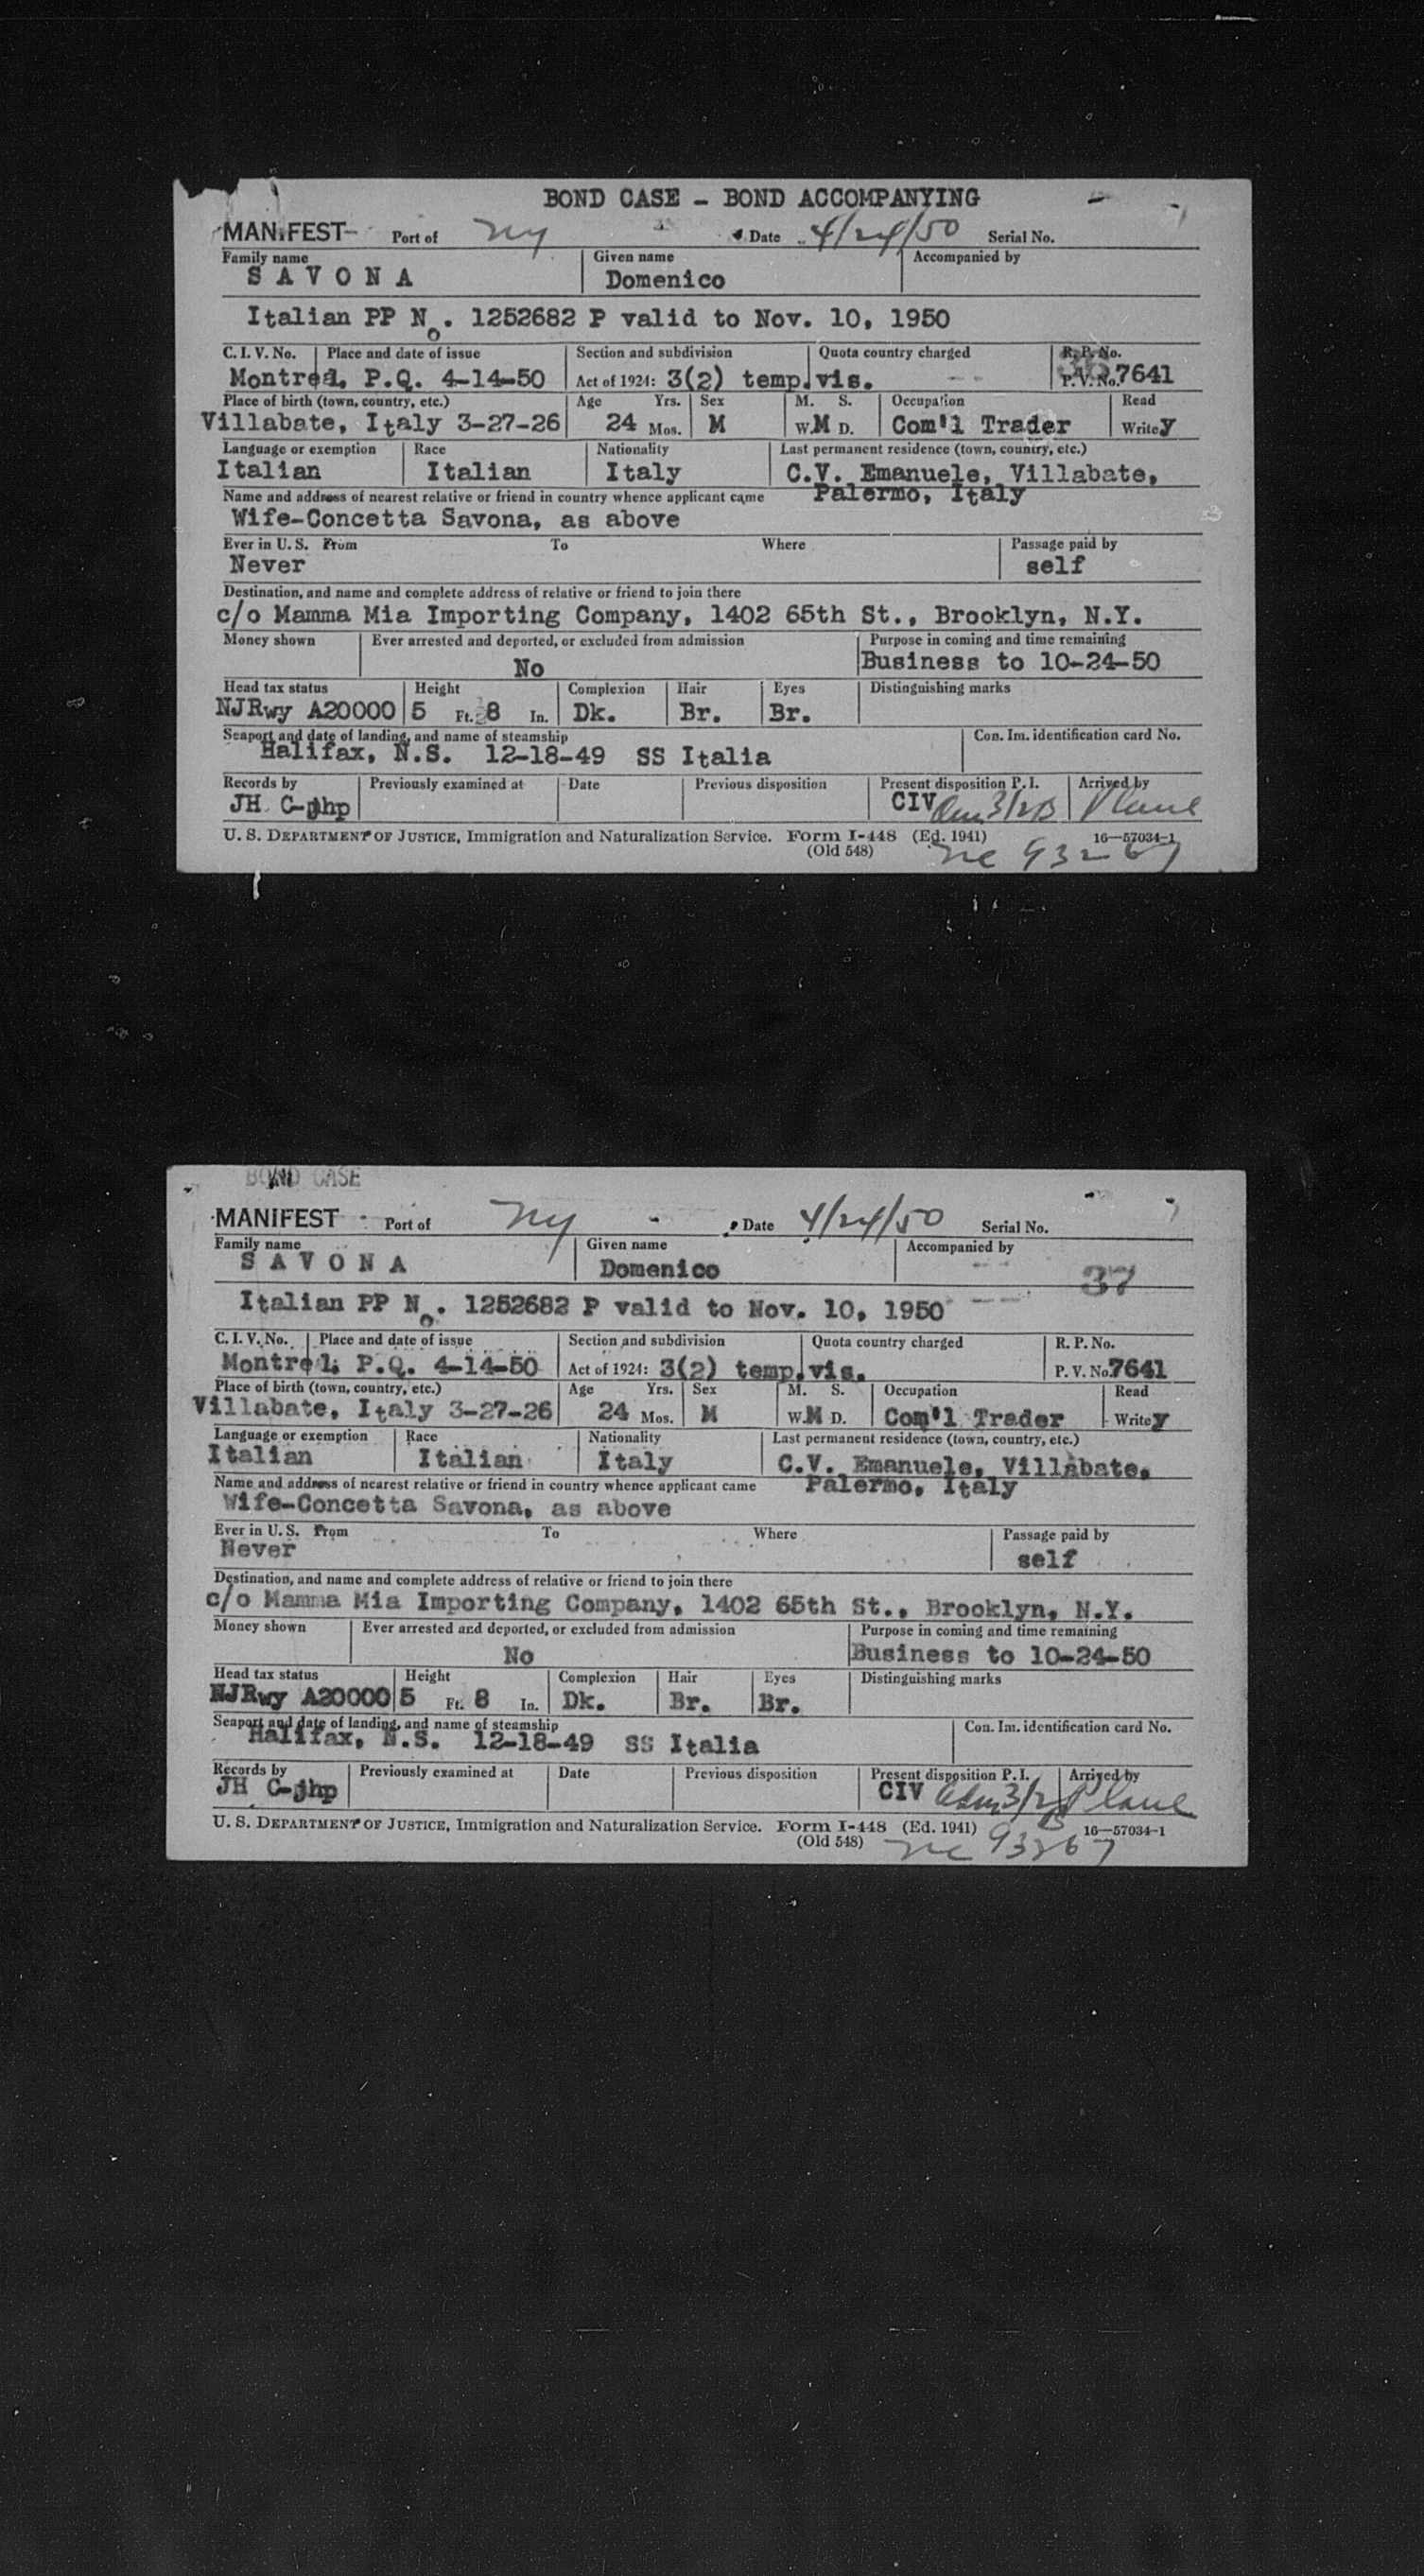 BOND CASE - BOND ACCOMPANYING
MANIFEST Port of NY Date 4/24/50 Serial No.
Family name Given name Accompanied by
SAVONA Domenico
Italian PP No. 1252682 P valid to Nov. 10, 1950
C. I. V. No. Place and date of issue Section and subdivision Quota country charged R. P. No.
Montreal, P.Q. 4-14-50 Act of 1924: 3(2) temp.vis. -- P. V. No. 7641
Place of birth (town, country, etc.) Age Yrs. Sex M. S. Occupation Read
Villabate, Italy 3-27-26 24 Mos. M W. M D. Com'l Trader Write y
Language or exemption Race Nationality Last permanent residence (town, country, etc.)
Italian Italian Italy C.V. Emanuele, Villabate,
Name and address of nearest relative or friend in country whence applicant came Palermo, Italy
Wife-Concetta Savona, as above
Ever in U. S. From To Where Passage paid by
Never self
Destination, and name and complete address of relative or friend to join there
c/o Mamma Mia Importing Company, 1402 65th St., Brooklyn, N.Y.
Money shown Ever arrested and deported, or excluded from admission Purpose in coming and time remaining
No Business to 10-24-50
Head tax status Height Complexion Hair Eyes Distinguishing marks
NJRwy A20000 5 Ft. 8 In. Dk. Br. Br.
Seaport and date of landing, and name of steamship Con. Im. identification card No.
Halifax, N.S. 12-18-49 SS Italia
Records by Previously examined at Date Previous disposition Present disposition P. I. Arrived by
JH C-jhp CIV Adm 3/2 Plane
U. S. DEPARTMENT OF JUSTICE, Immigration and Naturalization Service. Form I-448 (Ed. 1941) 16—57034-1
(Old 548) nc 93267
BOND CASE
MANIFEST Port of NY Date 4/24/50 Serial No.
Family name Given name Accompanied by
SAVONA Domenico 37
Italian PP No. 1252682 P valid to Nov. 10, 1950
C. I. V. No. Place and date of issue Section and subdivision Quota country charged R. P. No.
Montreal, P.Q. 4-14-50 Act of 1924: 3(2) temp.vis. P. V. No. 7641
Place of birth (town, country, etc.) Age Yrs. Sex M. S. Occupation Read
Villabate, Italy 3-27-26 24 Mos. M W. M D. Com'l Trader Write y
Language or exemption Race Nationality Last permanent residence (town, country, etc.)
Italian Italian Italy C.V. Emanuele, Villabate,
Name and address of nearest relative or friend in country whence applicant came Palermo, Italy
Wife-Concetta Savona, as above
Ever in U. S. From To Where Passage paid by
Never self
Destination, and name and complete address of relative or friend to join there
c/o Mamma Mia Importing Company, 1402 65th St., Brooklyn, N.Y.
Money shown Ever arrested and deported, or excluded from admission Purpose in coming and time remaining
No Business to 10-24-50
Head tax status Height Complexion Hair Eyes Distinguishing marks
NJRwy A20000 5 Ft. 8 In. Dk. Br. Br.
Seaport and date of landing, and name of steamship Con. Im. identification card No.
Halifax, N.S. 12-18-49 SS Italia
Records by Previously examined at Date Previous disposition Present disposition P. I. Arrived by
JH C-jhp CIV Adm 3/2 Plane
U. S. DEPARTMENT OF JUSTICE, Immigration and Naturalization Service. Form I-448 (Ed. 1941) 16—57034-1
(Old 548) nc 93267